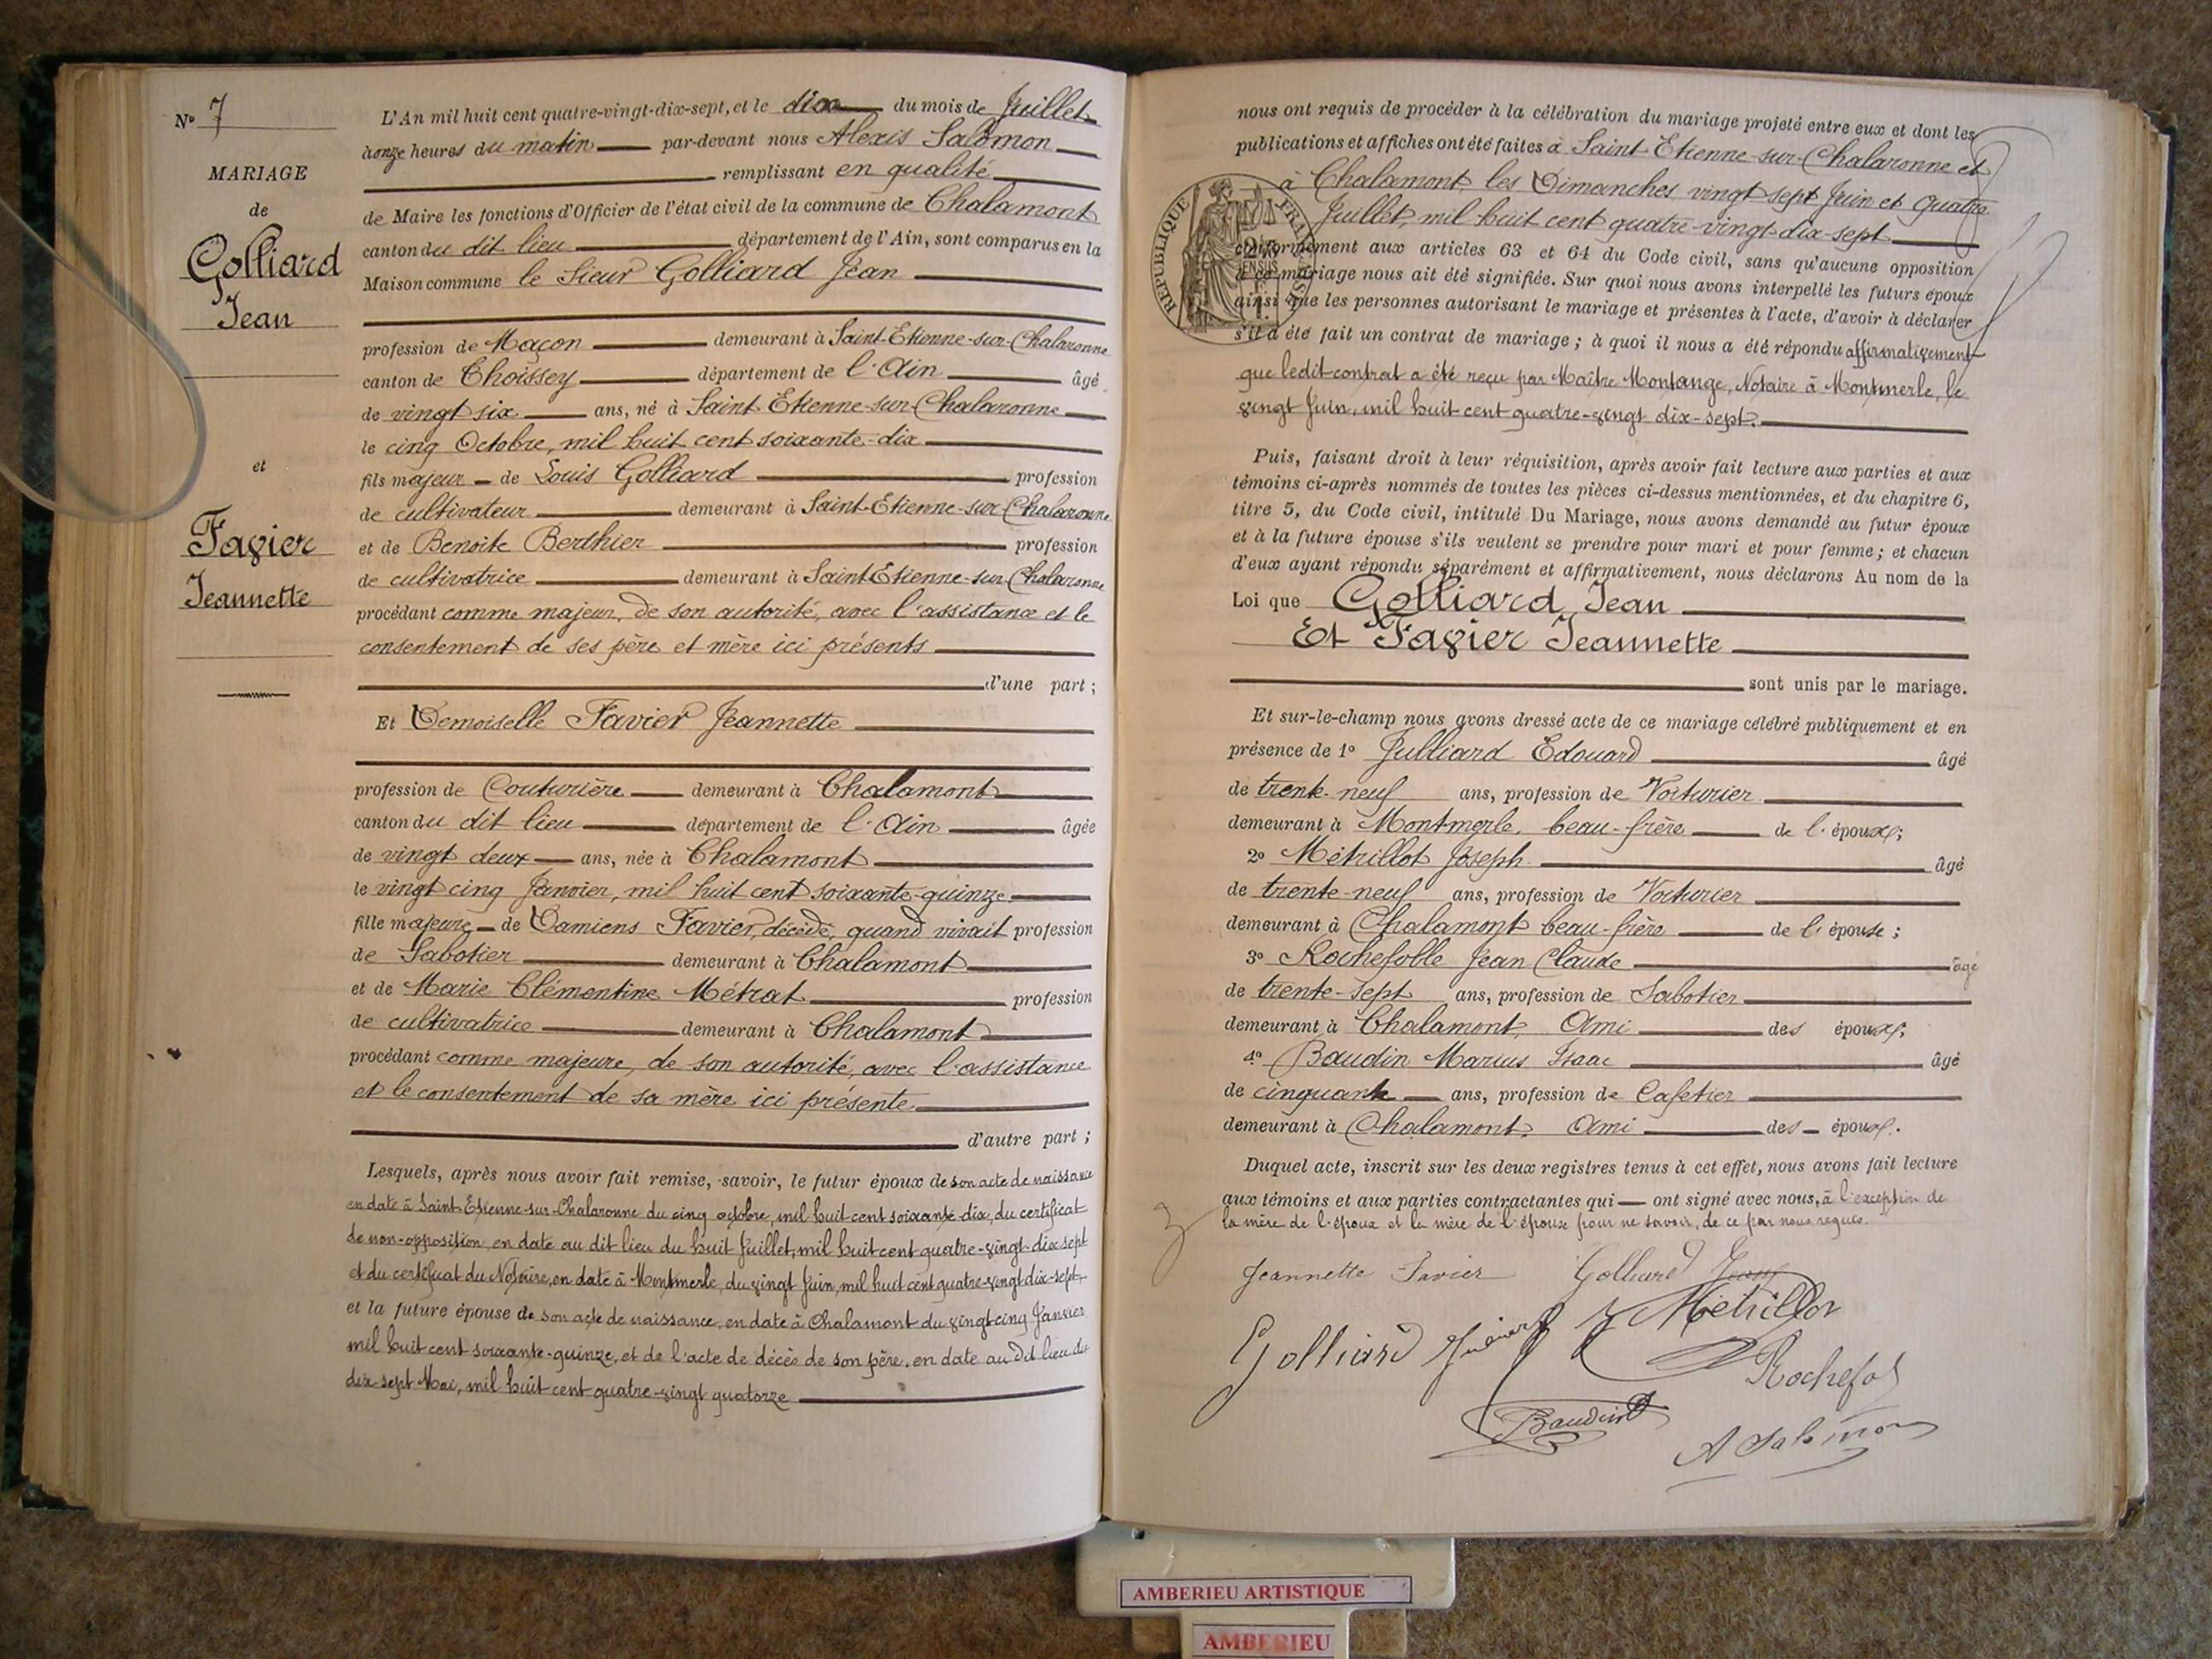 N° 7
MARIAGE
de
Golliard
Jean
et
Favier
Jeannette
L'An mil huit cent quatre-vingt-dix-sept, et le dix du mois de Juillet
à onze heures du matin par-devant nous Alexis Salomon
remplissant en qualité
de Maire les fonctions d'Officier de l'état civil de la commune de Chalamont
canton du dit lieu département de l'Ain, sont comparus en la
Maison commune le Sieur Golliard Jean
profession de Maçon demeurant à Saint-Etienne-sur-Chalaronne
canton de Thoissey département de l'Ain âgé
de vingt six ans, né à Saint Etienne-sur-Chalaronne
le cinq Octobre, mil huit cent soixante-dix
fils majeur de Louis Golliard profession
de cultivateur demeurant à Saint-Etienne-sur-Chalaronne
et de Benoite Berthier profession
de cultivatrice demeurant à Saint Etienne-sur-Chalaronne
procédant comme majeur, de son autorité, avec l'assistance et le
consentement de ses père et mère ici présents
d'une part;
Et Demoiselle Favier Jeannette
profession de Couturière demeurant à Chalamont
canton du dit lieu département de l'Ain âgée
de vingt deux ans, née à Chalamont
le vingt cinq Janvier, mil huit cent soixante-quinze
fille majeure de Damiens Favier, décédé, quand vivait profession
de Sabotier demeurant à Chalamont
et de Marie Clémentine Métrat profession
de cultivatrice demeurant à Chalamont
procédant comme majeure, de son autorité, avec l'assistance
et le consentement de sa mère ici présente.
d'autre part;
Lesquels, après nous avoir fait remise, savoir, le futur époux de son acte de naissance
en date à Saint-Etienne-sur-Chalaronne du cinq octobre, mil huit cent soixante-dix, du certificat
de non-opposition en date au dit lieu du huit Juillet, mil huit cent quatre-vingt-dix sept
et du certificat du Notaire, en date à Montmerle, du vingt Juin, mil huit cent quatre-vingt dix-sept,
et la future épouse de son acte de naissance, en date à Chalamont du vingt-cinq Janvier
mil huit cent soixante-quinze, et de l'acte de décès de son père, en date au dit lieu du
dix-sept Mai, mil huit cent quatre-vingt quatorze
nous ont requis de procéder à la célébration du mariage projeté entre eux et dont les
publications et affiches ont été faites à Saint-Etienne-sur-Chalaronne et
à Chalamont, les Dimanches vingt sept Juin et quatre
Juillet, mil huit cent quatre-vingt-dix-sept
conformément aux articles 63 et 64 du Code civil, sans qu'aucune opposition
à ce mariage nous ait été signifiée. Sur quoi nous avons interpellé les futurs époux
ainsi que les personnes autorisant le mariage et présentes à l'acte, d'avoir à déclarer
s'il a été fait un contrat de mariage; à quoi il nous a été répondu affirmativement
que ledit contrat a été reçu par Maître Montange, Notaire à Montmerle, le
vingt Juin, mil huit cent quatre-vingt dix-sept.
REPUBLIQUE FRANÇAISE
Puis, faisant droit à leur réquisition, après avoir fait lecture aux parties et aux
témoins ci-après nommés de toutes les pièces ci-dessus mentionnées, et du chapitre 6,
titre 5, du Code civil, intitulé Du Mariage, nous avons demandé au futur époux
et à la future épouse s'ils veulent se prendre pour mari et pour femme; et chacun
d'eux ayant répondu séparément et affirmativement, nous déclarons Au nom de la
Loi que Golliard, Jean
Et Favier Jeannette
sont unis par le mariage.
Et sur-le-champ nous avons dressé acte de ce mariage célébré publiquement et en
présence de 1° Julliard Edouard âgé
de trente-neuf ans, profession de Voiturier
demeurant à Montmerle, beau-frère de l'époux;
2° Métrillot Joseph âgé
de trente-neuf ans, profession de Voiturier
demeurant à Chalamont beau-frère de l'épouse;
3° Rochefolle Jean Claude âgé
de trente-sept ans, profession de Sabotier
demeurant à Chalamont, Ami des époux;
4° Baudin Marius Isaac âgé
de cinquante ans, profession de Cafetier
demeurant à Chalamont, Ami des époux.
Duquel acte, inscrit sur les deux registres tenus à cet effet, nous avons fait lecture
aux témoins et aux parties contractantes qui ont signé avec nous, à l'exception de
la mère de l'époux et la mère de l'épouse pour ne savoir, de ce par nous requis.
Jeannette Favier Golliard Jean
Golliard Métrillot
Rochefol
Baudin
A Salomon
AMBERIEU ARTISTIQUE
AMBERIEU